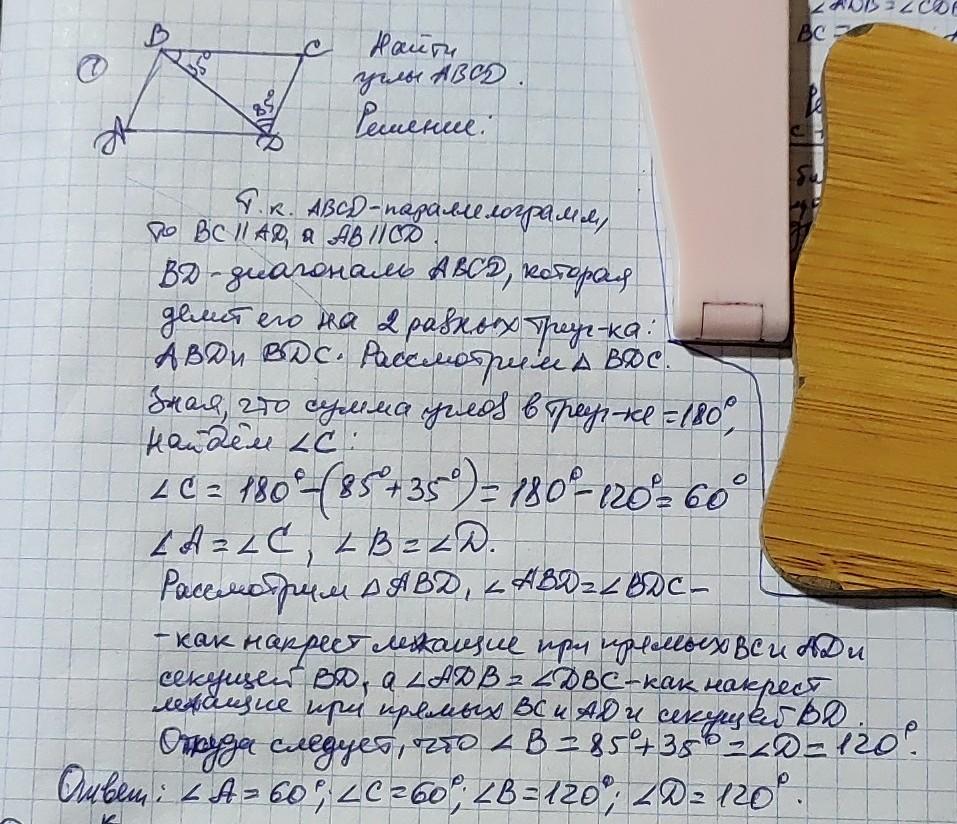 ∠ADB = ∠CDB
BC =
B
C
Найти
①
35°
углы ABCD.
85°
A
D
Решение:
Т.к. ABCD-параллелограмм,
то BC || AD, а AB || CD.
BD-диагональ ABCD, которая
делит его на 2 равных треуг-ка:
ABD и BDC. Рассмотрим △ BDC.
Зная, что сумма углов в треуг-ке = 180°,
найдём ∠C:
∠C = 180° - (85° + 35°) = 180° - 120° = 60°
∠A = ∠C, ∠B = ∠D.
Рассмотрим △ ABD, ∠ABD = ∠BDC -
- как накрест лежащие при прямых BC и AD и
секущей BD, а ∠ADB = ∠DBC - как накрест
лежащие при прямых BC и AD и секущей BD.
Откуда следует, что ∠B = 85° + 35° = ∠D = 120°.
Ответ: ∠A = 60°; ∠C = 60°; ∠B = 120°; ∠D = 120°.